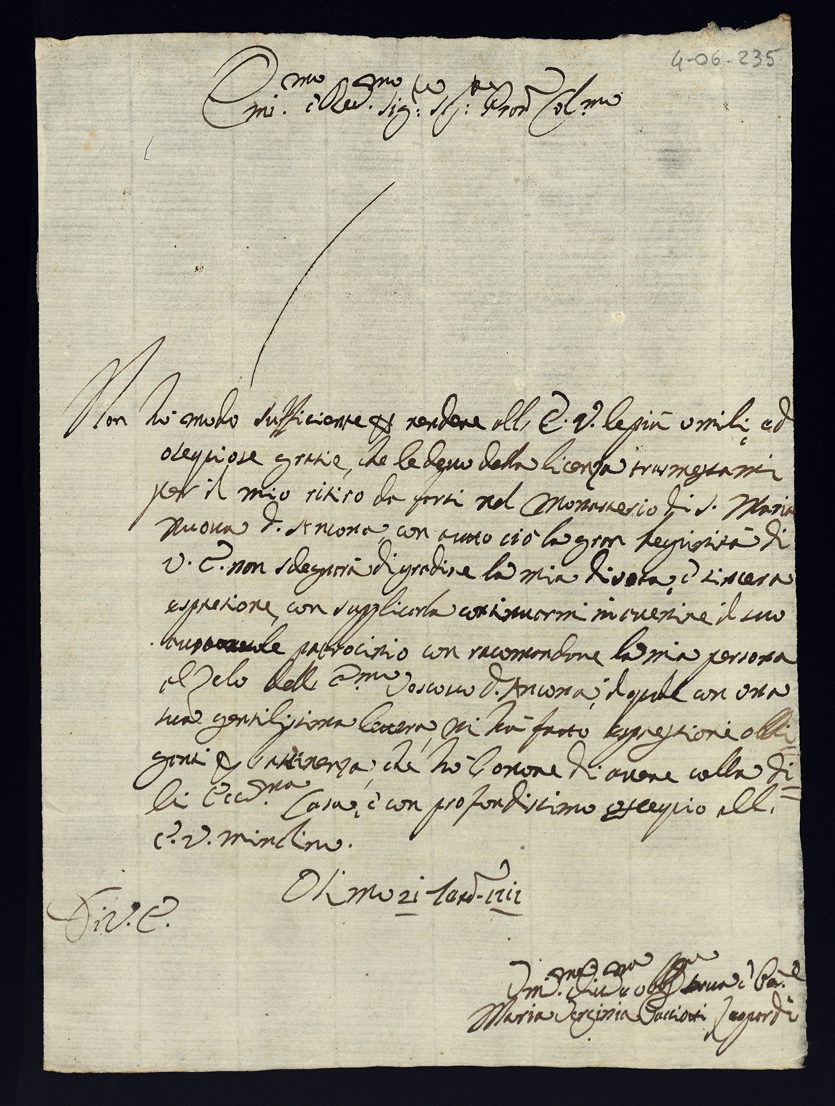 4-06-235
Emi.mo e Rev.mo Sig.re Sig.re Pron Col.mo
Non hò modo sufficiente per rendere all' E. V. le più umili, ed
ossequiose gratie, che le devo della licenza trasmessami
per il mio ritiro da farsi nel Monasterio di S. Maria
Nuova d'Ancona, con tutto ciò la gran benignità di
V. E. non sdegnarà di gradire la mia divota, e sincera
espresione, con supplicarla continuarmi in avenire il suo
patrocinio con racomandare la mia persona
al zelo dell' E.mo Vescovo d'Ancona, il quale con una
sua gentilissima lettera, mi hà fatto espressioni obli-
ganti per l'attinenza, che hà l'onore di avere colla di
lei Ecc.ma Casa, e con profondissimo ossequio all'
E. V. m'inclino.
Di V. E.
Osimo 21
Um.ma Div.ma Obl.ma Serva
Maria Verginia